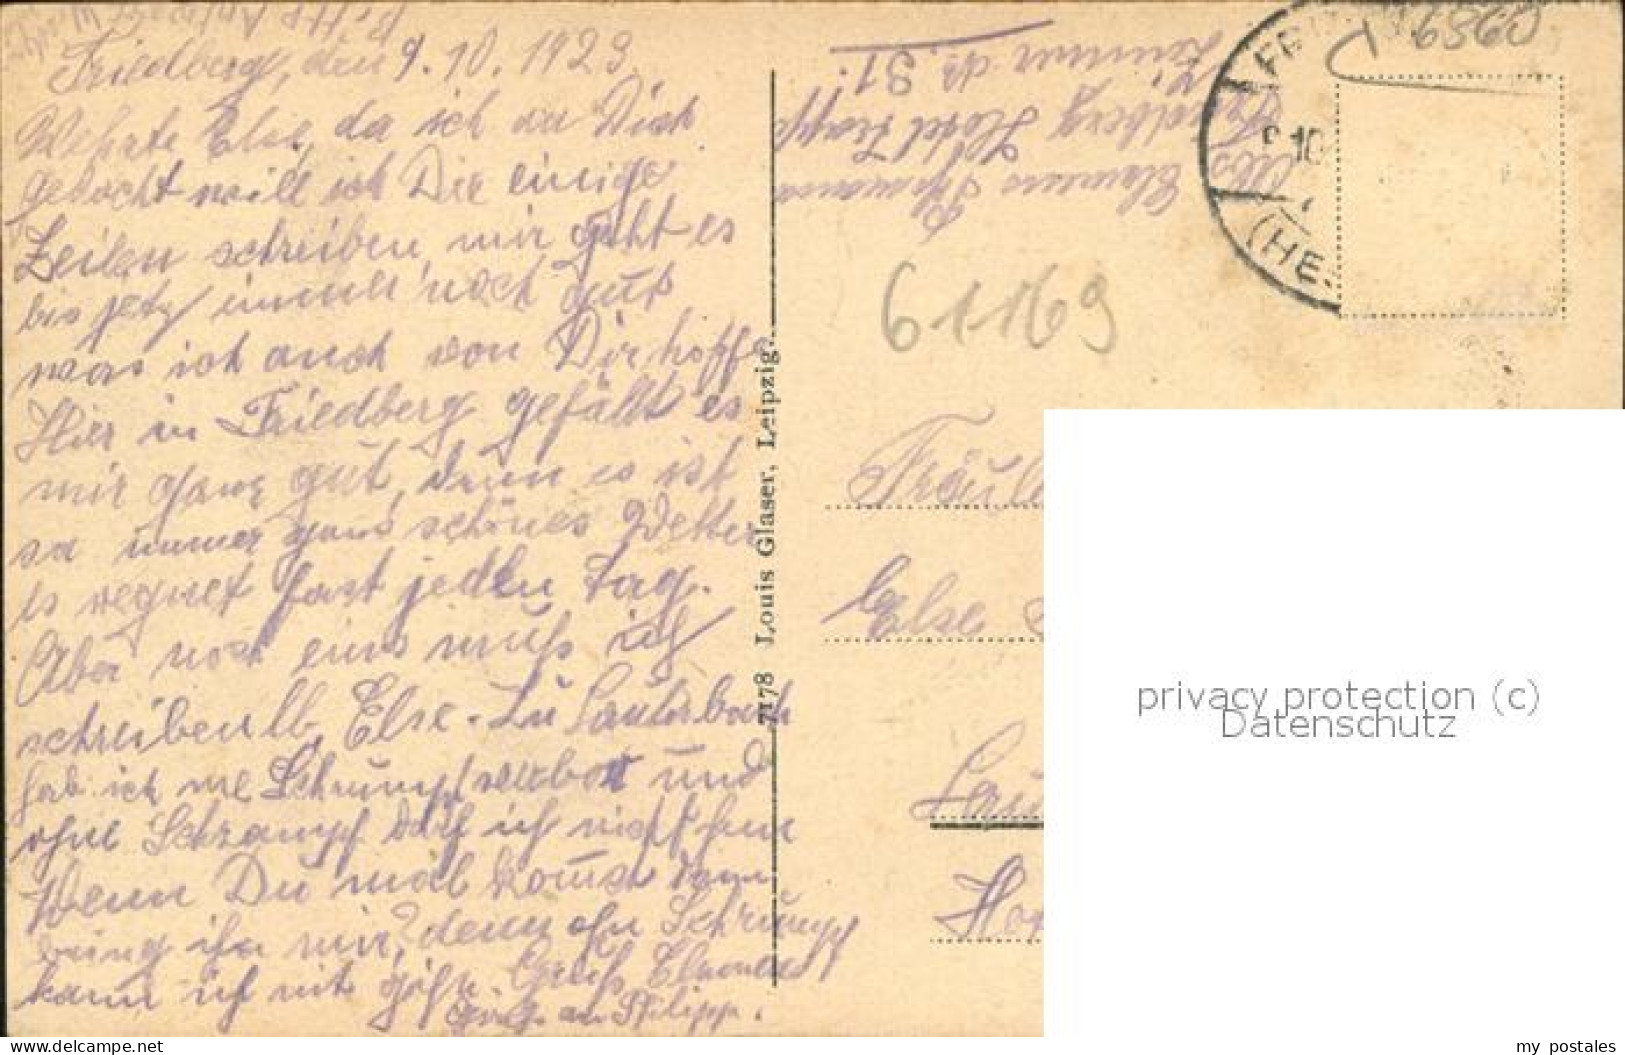 Friedberg, den 9.10.1923.
Wehrte Else, da ich an Dich
gedacht will ich Dir einige
Zeilen schreiben, mir geht es
bis jetz immer noch gut
was ich auch von Dir hoffe
Hier in Friedberg gefällt es
mir ganz gut, denn es ist
so immer ganz schönes Wetter
es regnet fast jeden Tag.
Aber noch eins muß ich
schreiben lb. Else. In Lauterbach
hab ich ne Schrumpf verbot und
ohne Schrampf darf ich nicht
Wenn Du mal komst dann
bring ihn mir, denn ohn Schrumpf
kann ich nit gehn. Gruß
Gruß an Philipp.
7178 Louis Glaser, Leipzig.
Bitte Antwort
Abs. Clemens
Friedberg Hotel Trapp
Zimmer 31
6960
FR
10
(HE
61169
Fräul
Else
Lau
privacy protection (c)
Datenschutz
my postales
www.delcampe.net